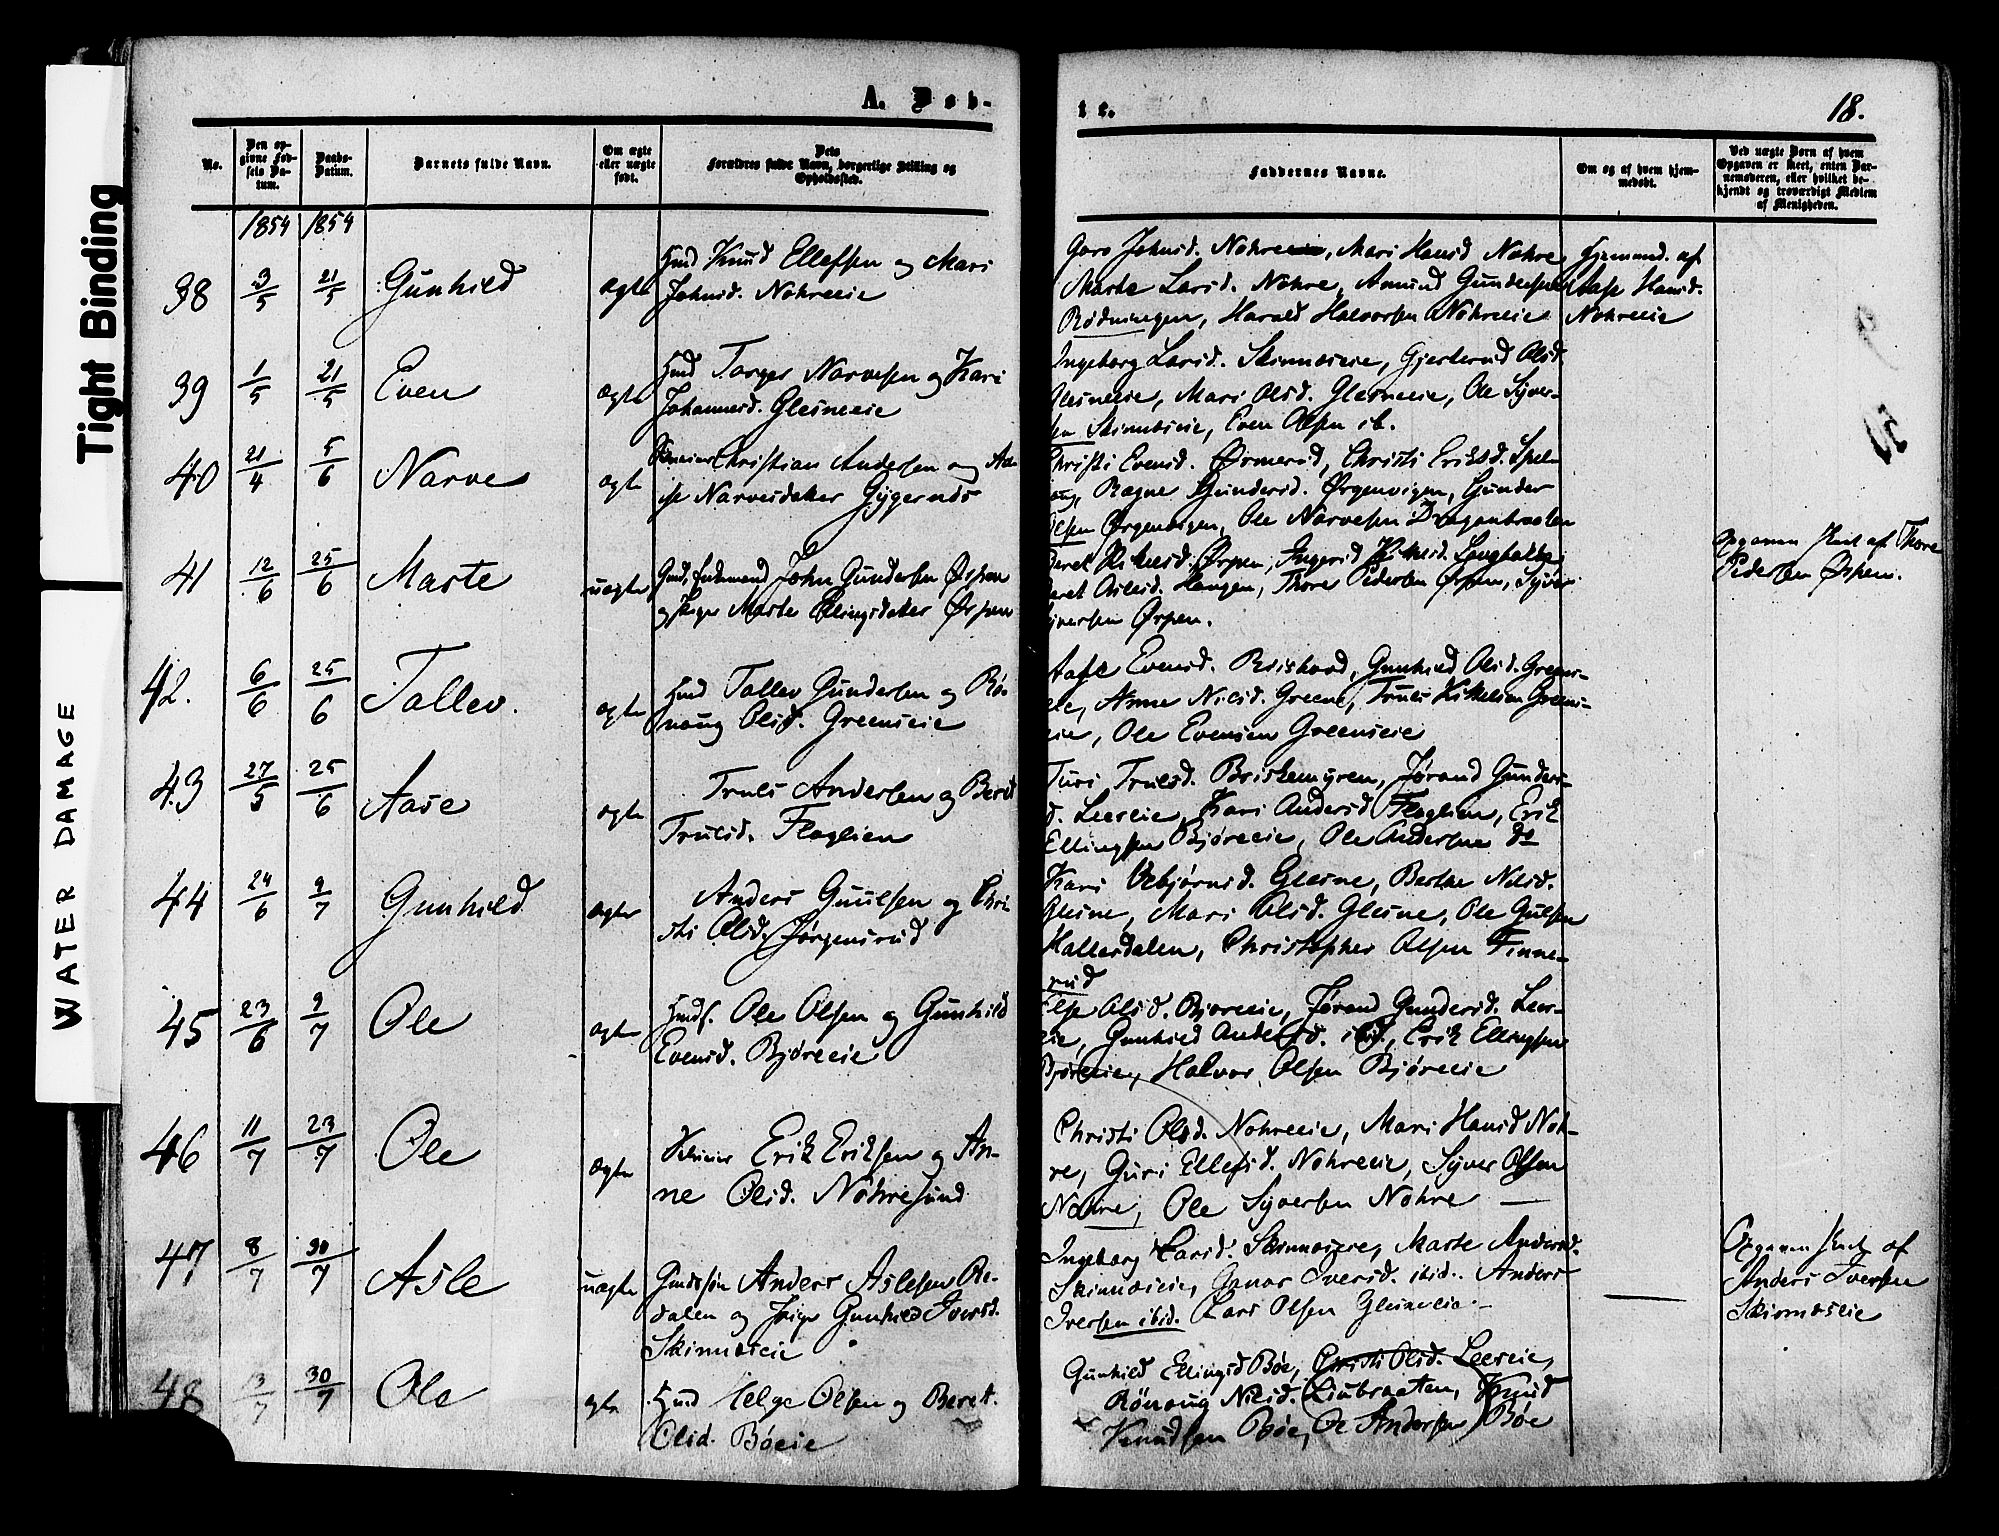 Tight Binding
WATER DAMAGE
A. Døb-
te.
18.
No.
Den op-
givne Fød-
sels Da-
tum.
Daabs-
Datum.
Barnets fulde Navn.
Om ægte
eller uægte
født.
Dets
Forældres fulde Navn, borgerlige Stilling og
Opholdssted.
Faddernes Navne.
Om og af hvem hjem-
medøbt.
Ved uægte Børn af hvem
Opgaven er skeet, enten Bar-
nemoderen, eller hvilket be-
kjendt og troværdigt Medlem
af Menigheden.
1854 1854
38 3/5 21/5 Gunhild ægte
Hmd Knud Ellefsen og Mari
Johnsd. Nohreeie
Goro Johnsd. Nohreeie, Mari Hansd Nohre
Marte Larsd. Nohre, Amund Gundersen
Rødningen, Harald Halvorsen Nohreeie
Hjemmed. af
Aase Hansd.
Nohreeie
39 1/5 21/5 Even ægte
Hmd Torger Narvesen og Kari
Johannesd. Glesneeie
Ingeborg Larsd. Skinnæseie, Gjertrud Olsd.
Glesneeie, Mari Olsd. Glesneeie, Ole Syver-
sen Skinnæseie, Even Olsen ib.
40 21/4 5/6 Narve ægt
Christian Andersen og Aa-
se Narvesdatter Gygernds
Christi Evensd. Ørmerud, Christi Eriksd. Spel-
Ragne Gundersd. Ørgenvigen, Gunder
Olsen Ørgenvigen, Ole Narvesen Dragenbraaten
41 12/6 25/6 Marte uægte
John Gundersen Ørpen
og Pige Marte Ellingsdatter Ørpen
Beret Ørpen, Ingerid
Haugen, Thore Pedersen Ørpen, Syver
Syversen Ørpen.
Opgaven skeet af Thore
Pedersen Ørpen.
42. 6/6 25/6 Tollev. ægte
Hmd Tollev Gundersen og Rø-
naug Olsd. Greenseie
Aase Evensd. Gunhild Olsd. Greens-
eie, Anne Nilsd. Greene, Truls Kittelsen Greens-
eie, Ole Evensen Greenseie
43 27/5 25/6 Aase ægte
Truls Andersen og Beret
Trulsd. Flaglien
Turi Trulsd. Briskemyren, Jørand Gunders-
d. Leereie, Kari Andersd Flaglien, Erik
Ellingsen Bjøreeie, Ole Andersen do
44 24/6 9/7 Gunhild ægte
Anders Guulsen og Chri-
sti Olsd. Jørgensrud
Kari Asbjørnsd. Glesne, Berthe Nilsd.
Glesne, Mari Olsd. Glesne, Ole Gulsen
Hallesdalen, Christopher Olsen Finne-
rud
45 23/6 9/7 Ole ægte
Hmd. Ole Olsen og Gunhild
Evensd. Bjøreeie
Else Olsd. Bjøreeie, Jørand Gundersd. Leer-
eie, Gunhild Andersd. ibid, Erik Ellingsen
Bjøreeie, Halvor Olsen Bjøreeie
46 11/7 23/7 Ole ægte
Erik Eriksen og An-
ne Olsd. Nohresund
Christi Olsd. Nohreeie, Mari Hansd Noh-
re, Guri Ellefsd. Nohreeie, Syver Olsen
Nohre, Ole Syversen Nohre
47 8/7 30/7 Asle uægte
Gmdssøn Anders Aslesen Re-
dalen og Pige Gunhild Iversd.
Skinnæseie
Ingeborg Larsd. Skinnæseie, Marte Andersd.
Skinnæseie, Iversd. ibid. Anders
Iversen ibid. Lars Olsen Glesneeie
Opgaven skeet af
Anders Iversen
Skinnæseie
48 13/7 30/7 Ole ægte
Hmd Helge Olsen og Beret
Olsd. Bøeie
Gunhild Ellingsd Bøe, Christi Olsd. Leereie,
Rønaug Nilsd. Liubraaten, Knud
Knudsen Bøe, Ole Andersen Bøe